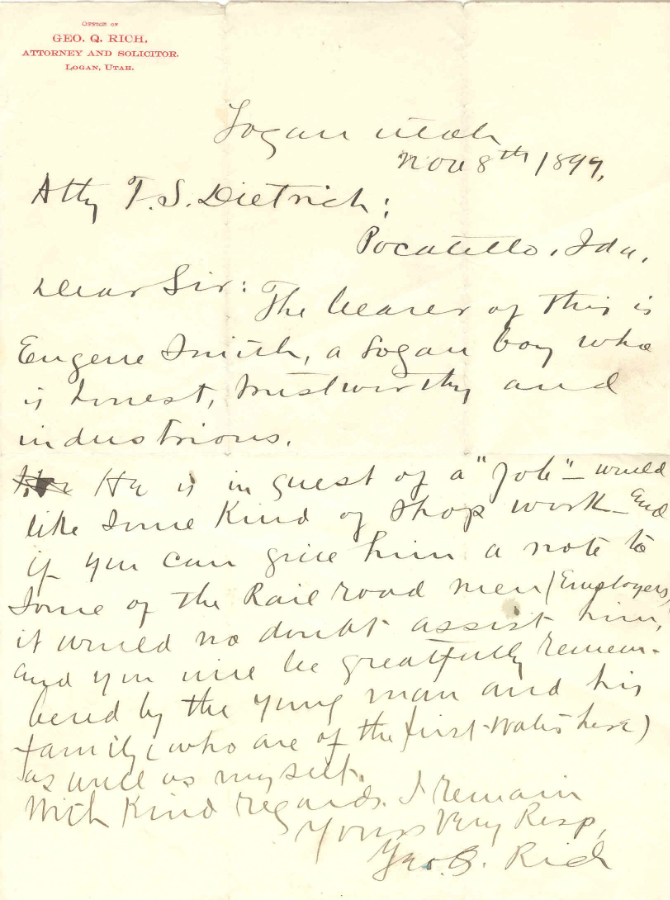 OFFICE OF
GEO. Q. RICH,
ATTORNEY AND SOLICITOR.
LOGAN, UTAH.
Logan Utah
Nov 8th 1899,
Atty T. S. Dietrich:
Pocatello, Ida,
Dear Sir: The bearer of this is
Eugene Smith, a Logan boy who
is honest, trustworthy and
industrious.
He is in quest of a "Job" – would
like some kind of shop work – and
if you can give him a note to
some of the Rail road men (Employers)
it would no doubt assist him,
and you will be greatfully remem-
bered by the young man and his
family (who are of the first water here)
as well as myself.
With kind regards. I remain
Yours Very Resp,
Geo. Q. Rich